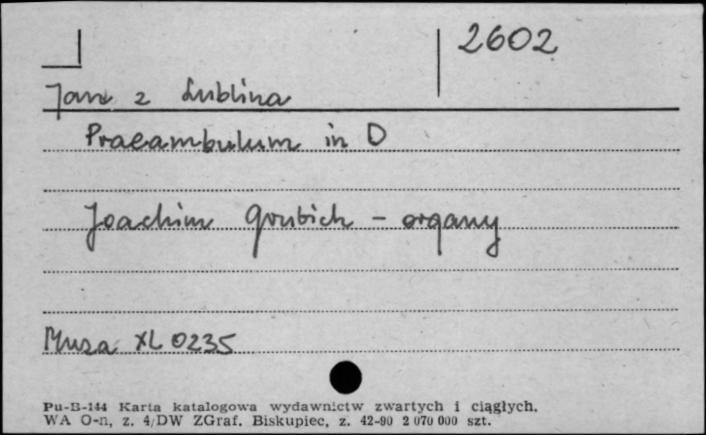 2602
Jan z Lublina
Praeambulum in D
Joachim Grubich - organy
Muza XL 0235
Pu-B-144 Karta katalogowa wydawnictw zwartych i ciągłych.
WA O-n, z. 4/DW ZGraf. Biskupiec, z. 42-90 2 070 000 szt.